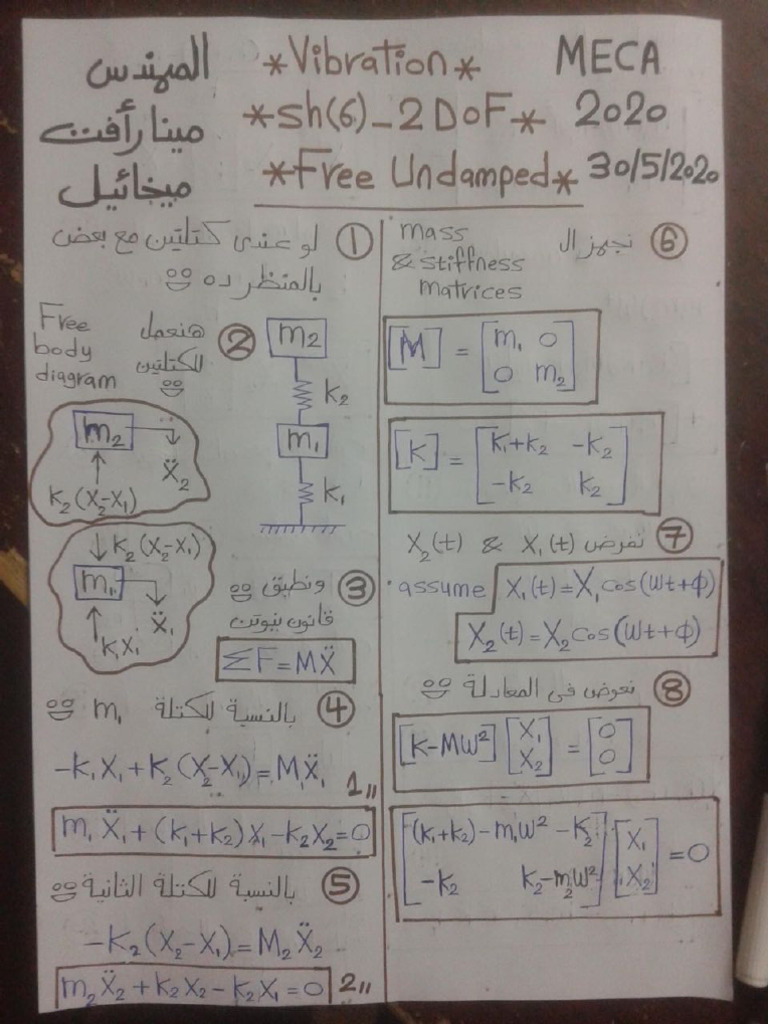 المهندس
مينا رأفت
ميخائيل
*Vibration*
*sh(6)_2DoF*
*Free Undamped*
MECA
2020
30/5/2020
① لو عندى كتلتين مع بعض
بالمنظر ده
② هنعمل
للكتلتين
Free
body
diagram
m₂
k₂
m₁
k₁
m₂
Ẍ₂
K₂(X₂-X₁)
K₂(X₂-X₁)
m₁
Ẍ₁
K₁X₁
③ ونطبق
قانون نيوتن
ΣF=MẌ
④ بالنسبة للكتلة m₁
-K₁X₁+K₂(X₂-X₁)=M₁Ẍ₁
m₁Ẍ₁+(K₁+K₂)X₁-K₂X₂=0 1,,
⑤ بالنسبة للكتلة الثانية
-K₂(X₂-X₁)=M₂Ẍ₂
m₂Ẍ₂+K₂X₂-K₂X₁=0 2,,
⑥ نجهز ال
mass
& stiffness
matrices
[M] = [m₁ 0
0 m₂]
[K] = [K₁+K₂ -K₂
-K₂ K₂]
⑦ نفرض X₁(t) & X₂(t)
assume X₁(t)=X₁cos(Wt+Φ)
X₂(t)=X₂cos(Wt+Φ)
⑧ نعوض فى المعادلة
[K-MW²] [X₁
X₂] = [0
0]
[(K₁+K₂)-m₁W² -K₂
-K₂ K₂-m₂W²] [X₁
X₂] =0